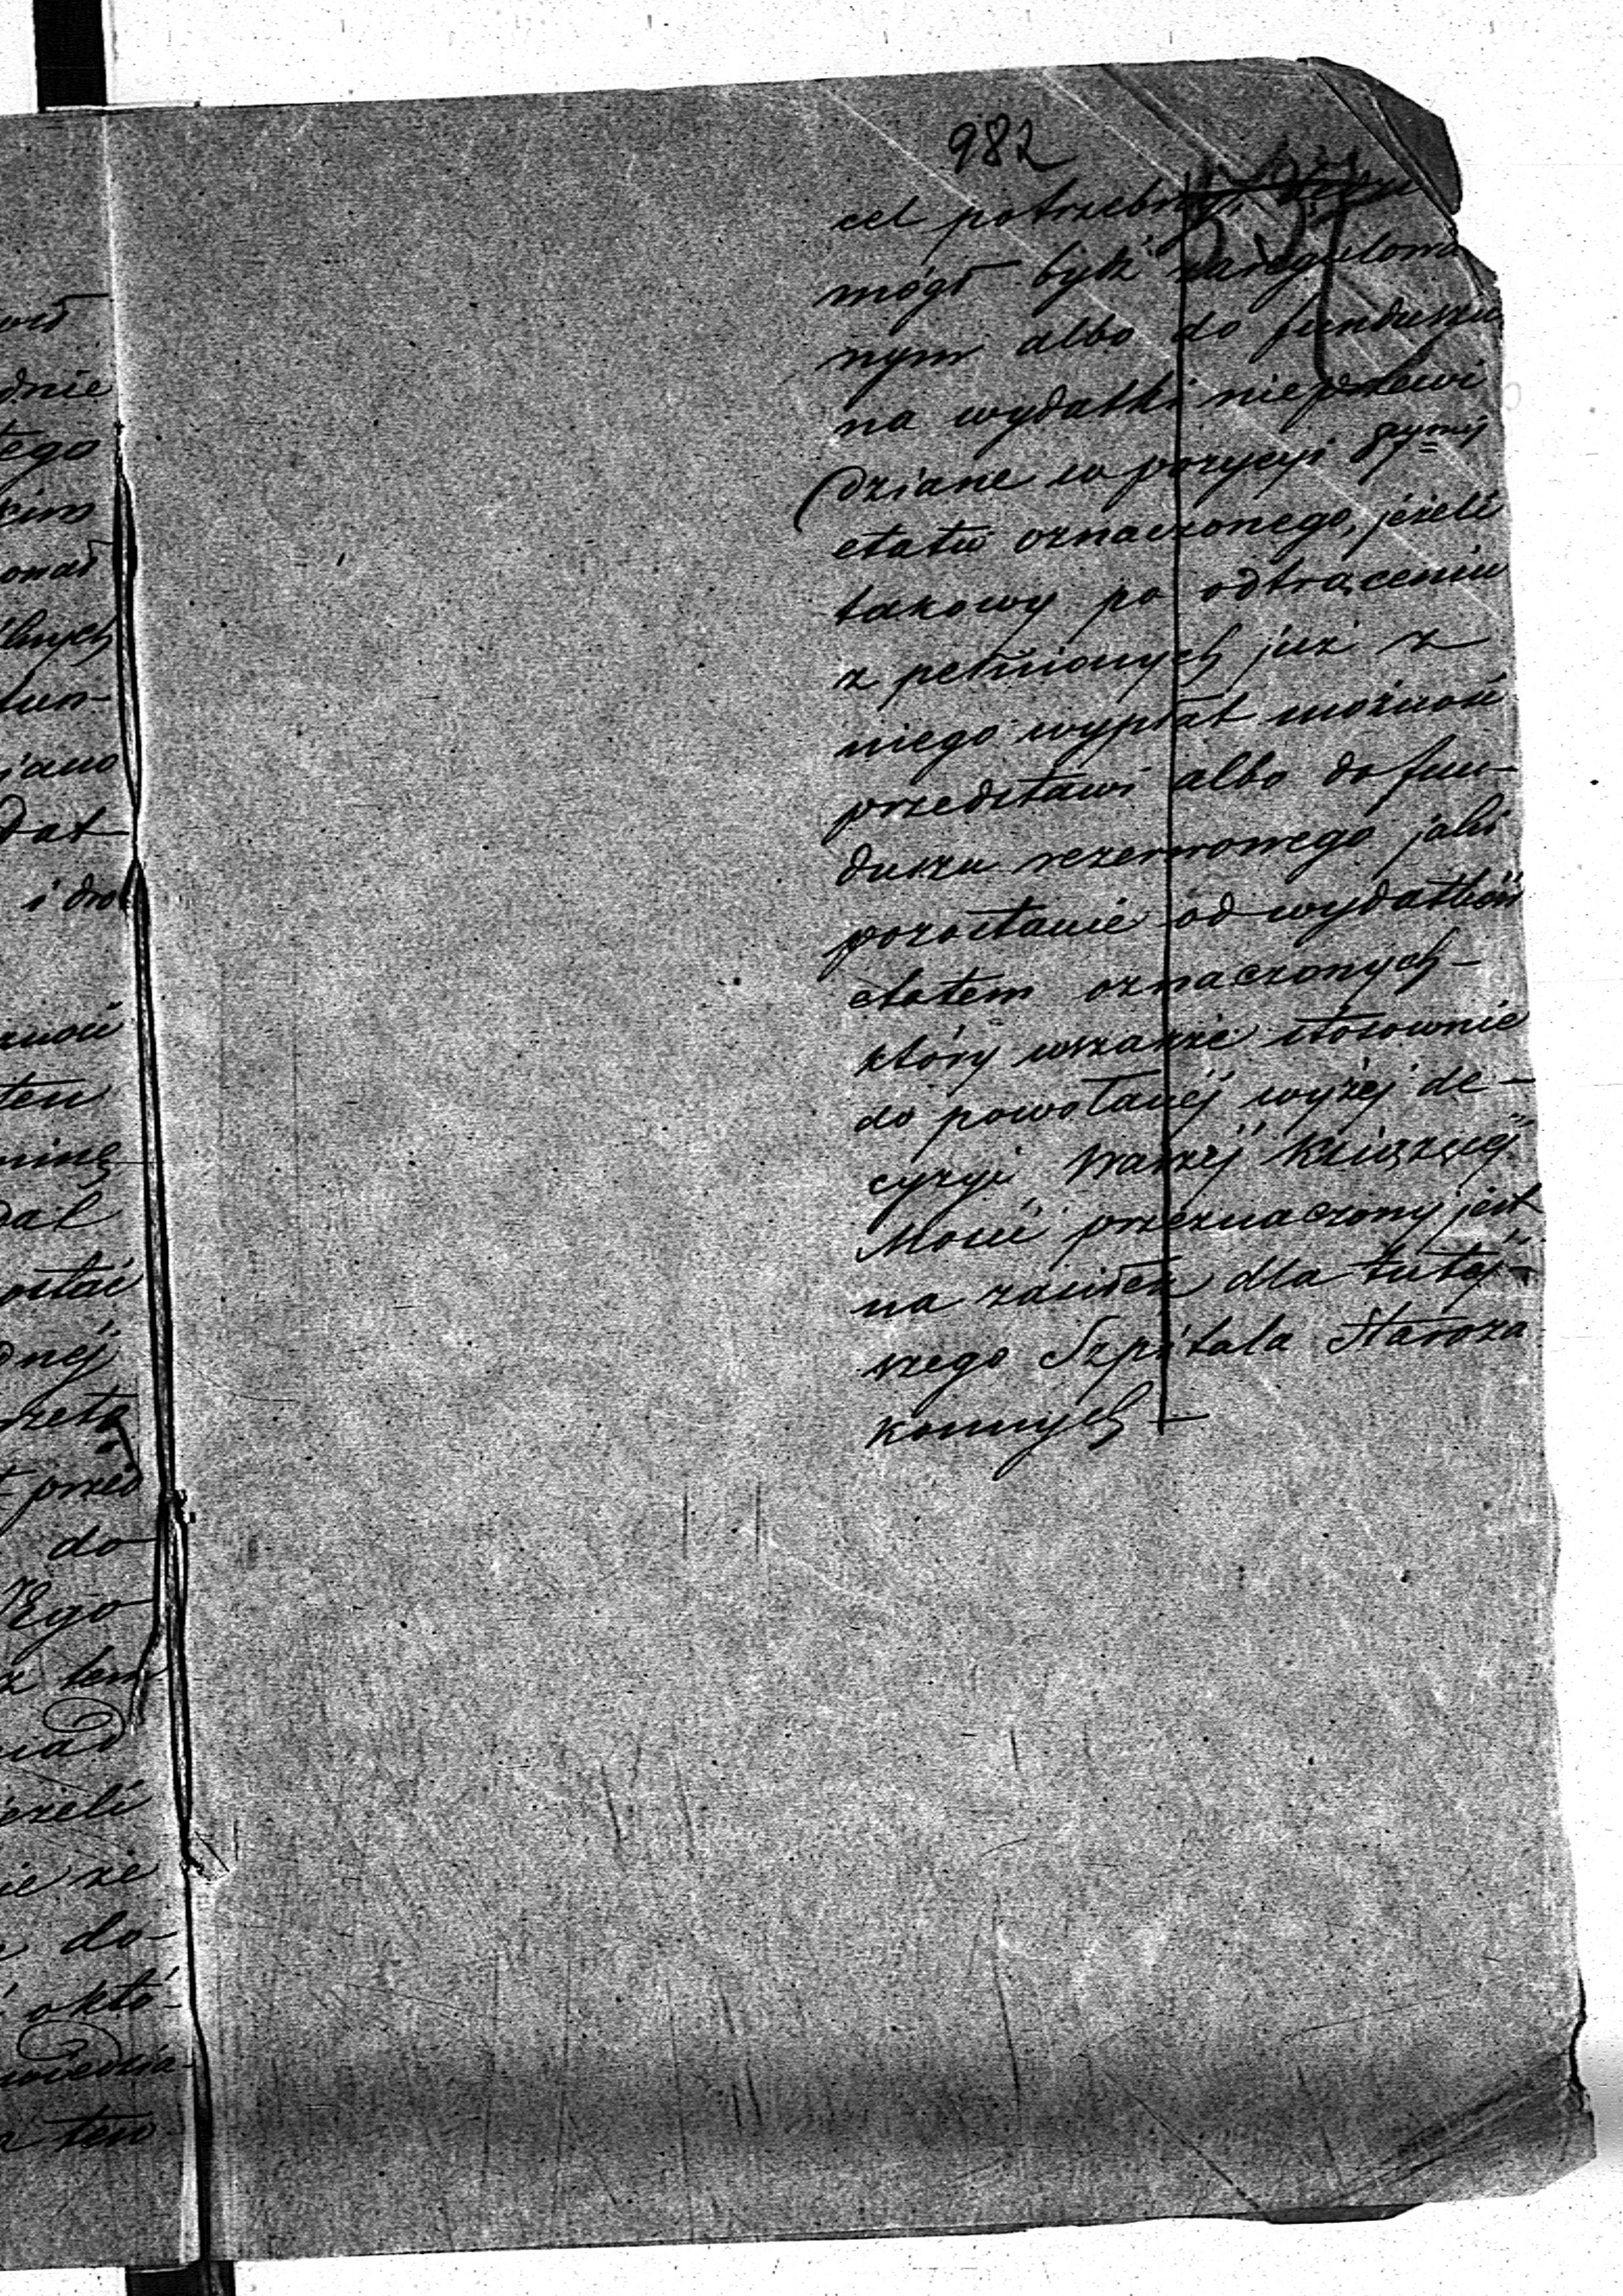 982
cel potrzebny,
mógł bydź zaregulowa
nym albo do funduszu
na wydatki nieprzewi
dziane w pozycyi
etatu oznaczonego, jeżeli
takowy po odtrąceniu
z pełnionych już z
niego wypłat możność
przedstawi albo do fun-
duszu rezerwowego jaki
pozostanie od wydatków
etatem oznaczonych -
który wszakże stosownie
do powołanéj wyżéj de-
cyzyi Waszéj Książęcéj
Mości przeznaczony jest
na zasiłek dla tutéj-
szego Szpitala Staroza
konnych -
dnie
tego
dat
i dro
ten
dal
dnéj
do
Ego
z tem
jeżeli
że
do-
októ-
ten